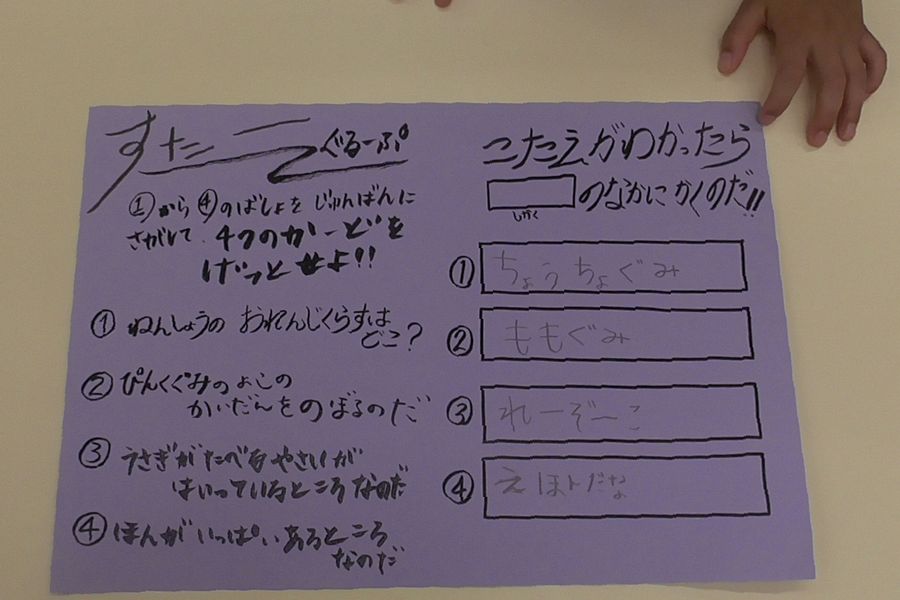 すたーぐるーぷ
①から④のばしょをじゅんばんに
さがして、4つのかーどを
げっとせよ!!
①ねんしょうのおれんじくらすは
どこ?
②ぴんくぐみのよこの
かいだんをのぼるのだ
③うさぎがたべるやさいが
はいっているところなのだ
④ほんがいっぱいあるところ
なのだ
こたえがわかったら
のなかにかくのだ!!
しかく
①ちょうちょぐみ
②ももぐみ
③れーぞーこ
④えほんだな